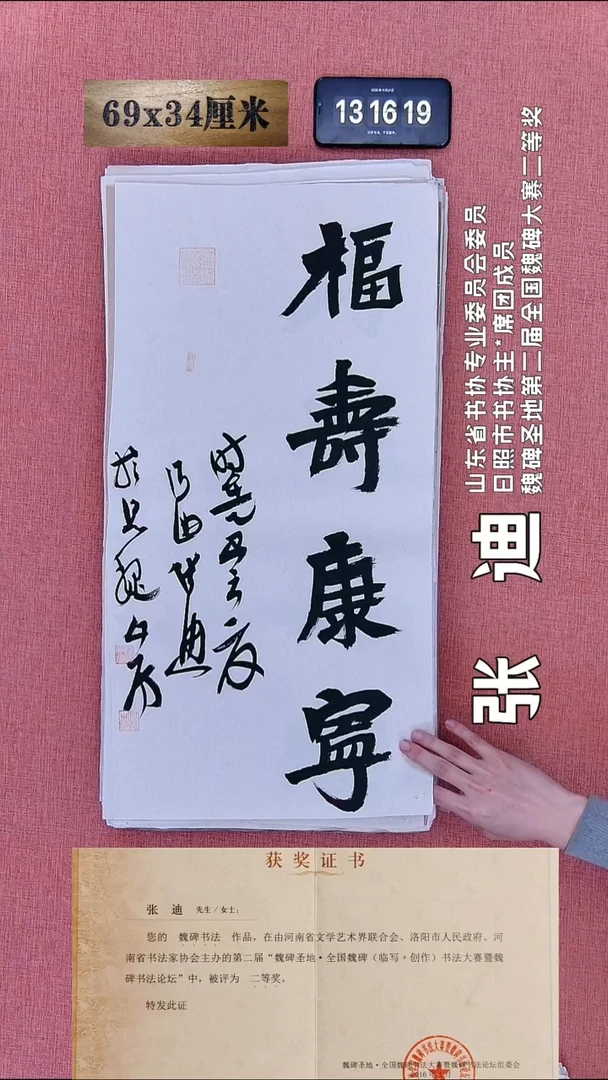 69x34厘米
13 16 19
福寿康寧
张 迪
山东省书协专业委员会委员
日照市书协主*席团成员
魏碑圣地第二届全国魏碑大赛二等奖
获奖证书
张 迪 先生/女士：
您的 魏碑书法 作品，在由河南省文学艺术界联合会、洛阳市人民政府、河
南省书法家协会主办的第二届“魏碑圣地·全国魏碑（临写+创作）书法大赛暨魏
碑书法论坛”中，被评为 二等奖。
特发此证
魏碑圣地·全国魏碑书法大赛暨魏碑书法论坛组委会